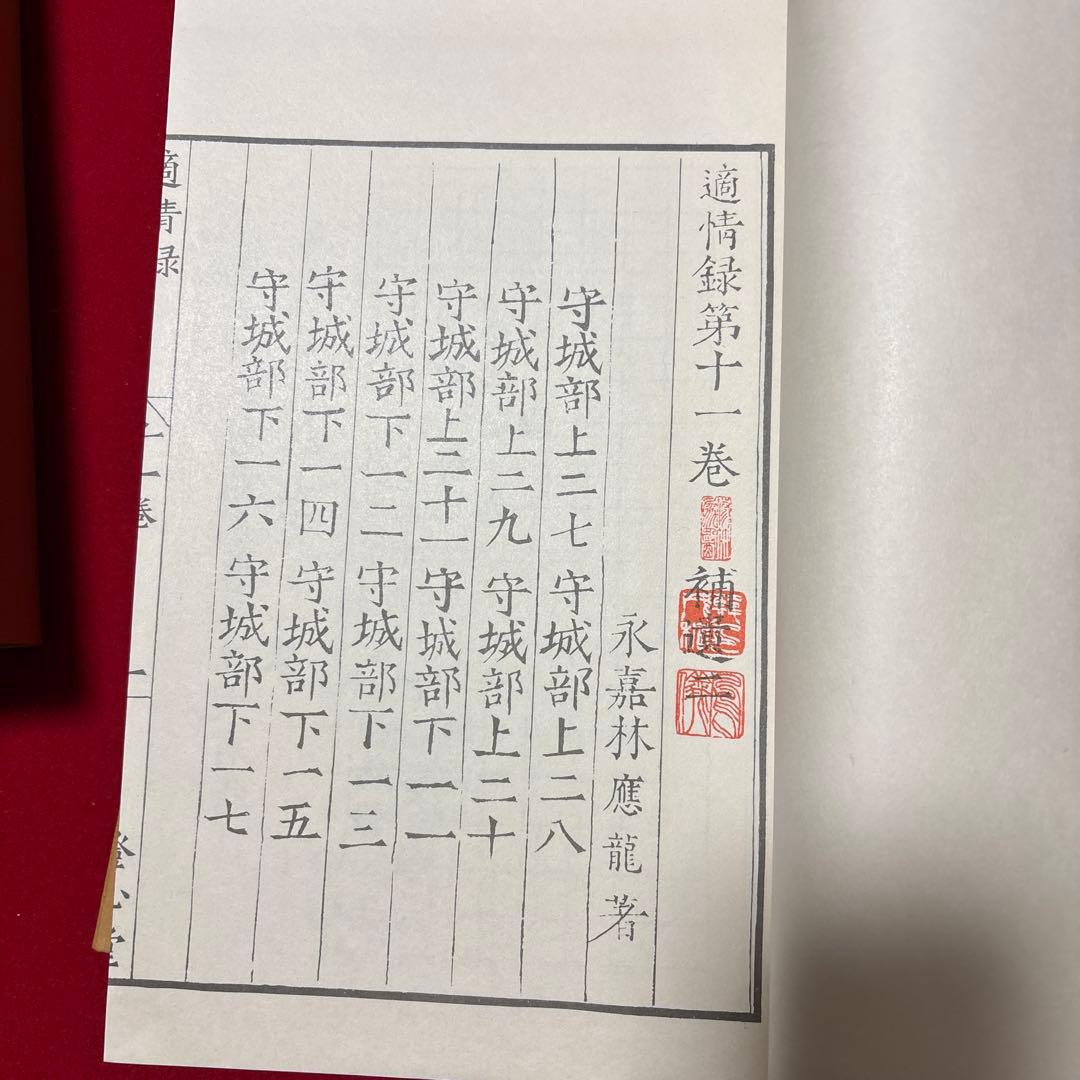 適情錄第十一卷 補遺二
永嘉林應龍著
守城部上二七 守城部上二八
守城部上二九 守城部上二十
守城部上二十一 守城部下一一
守城部下一二 守城部下一三
守城部下一四 守城部下一五
守城部下一六 守城部下一七
適情録
卷
澄心堂